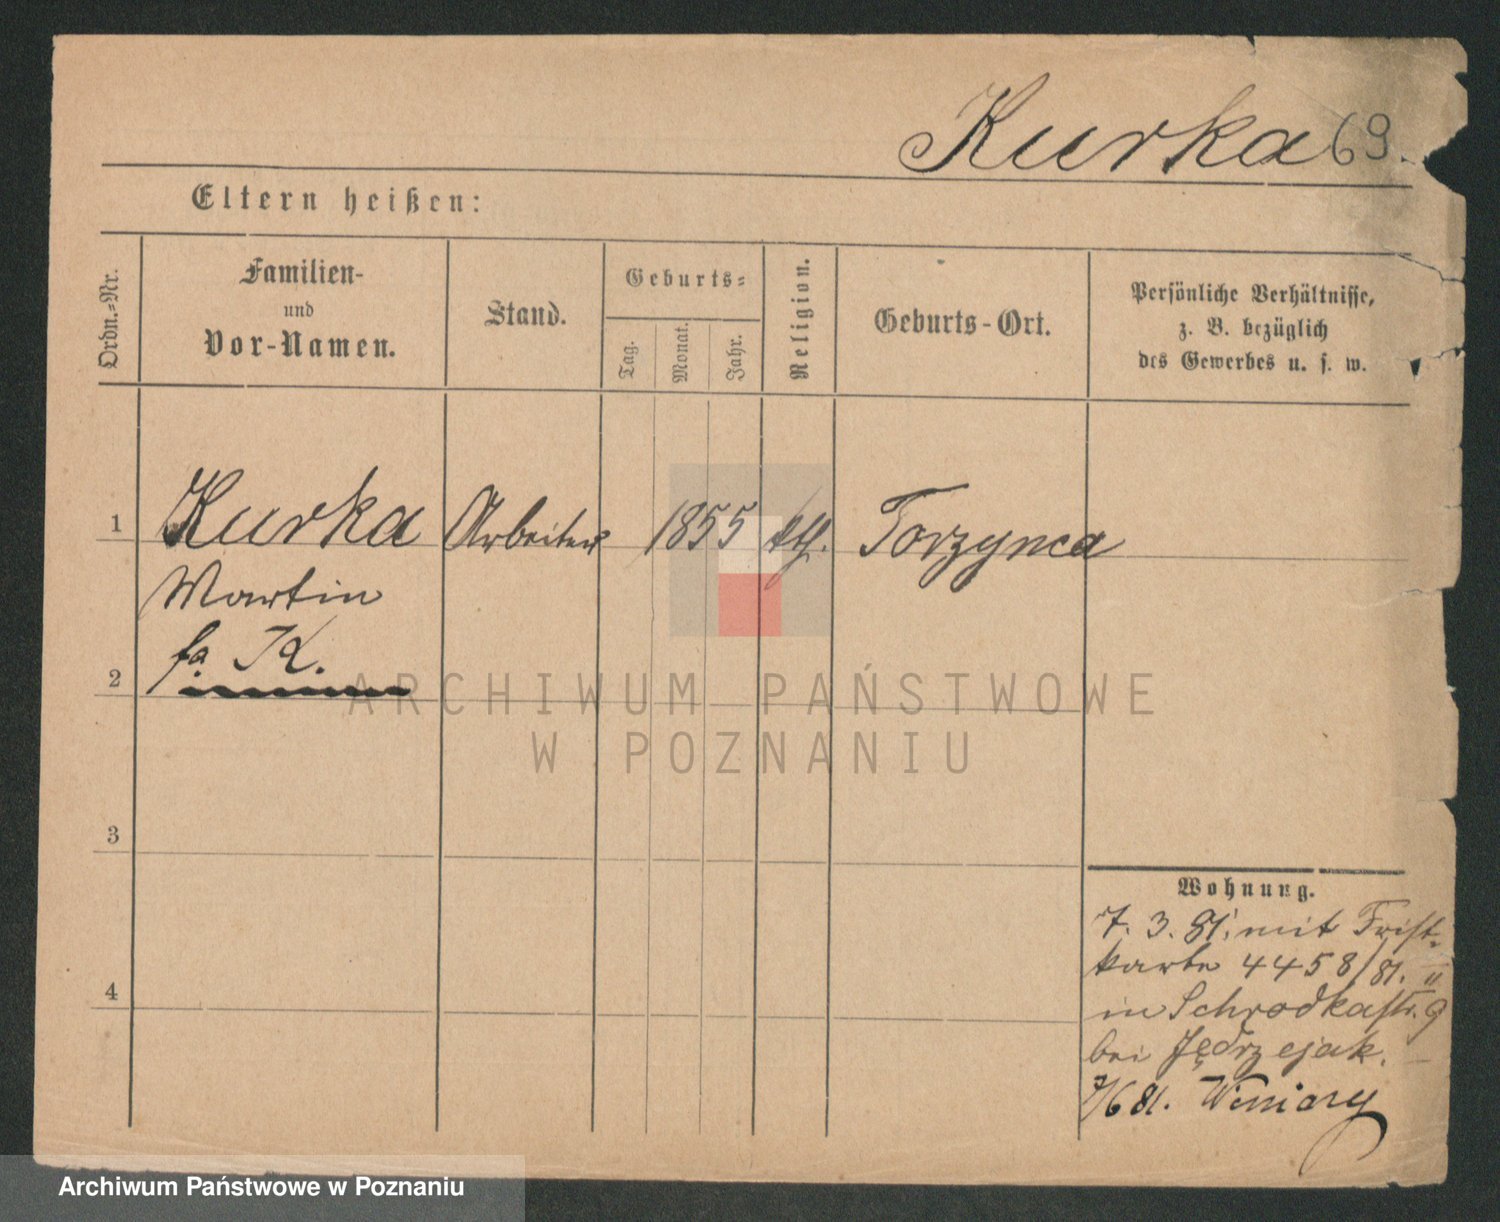 Kurka 69.
Eltern heißen:
Ordn.=Nr.
Familien-
und
Vor-Namen.
Stand.
Geburts=
Tag.
Monat.
Jahr.
Religion.
Geburts-Ort.
Persönliche Verhältnisse,
z. B. bezüglich
des Gewerbes u. s. w.
1
Kurka Arbeiter 1855 kth. Torzynca
Martin
fa. K.
2
3
4
Wohnung.
7. 3. 81. mit Frist-
karte 4458/81.
in Schrodkastr. 9
bei Jędrzejak.
7/6 81. Winiary
ARCHIWUM PAŃSTWOWE
W POZNANIU
Archiwum Państwowe w Poznaniu